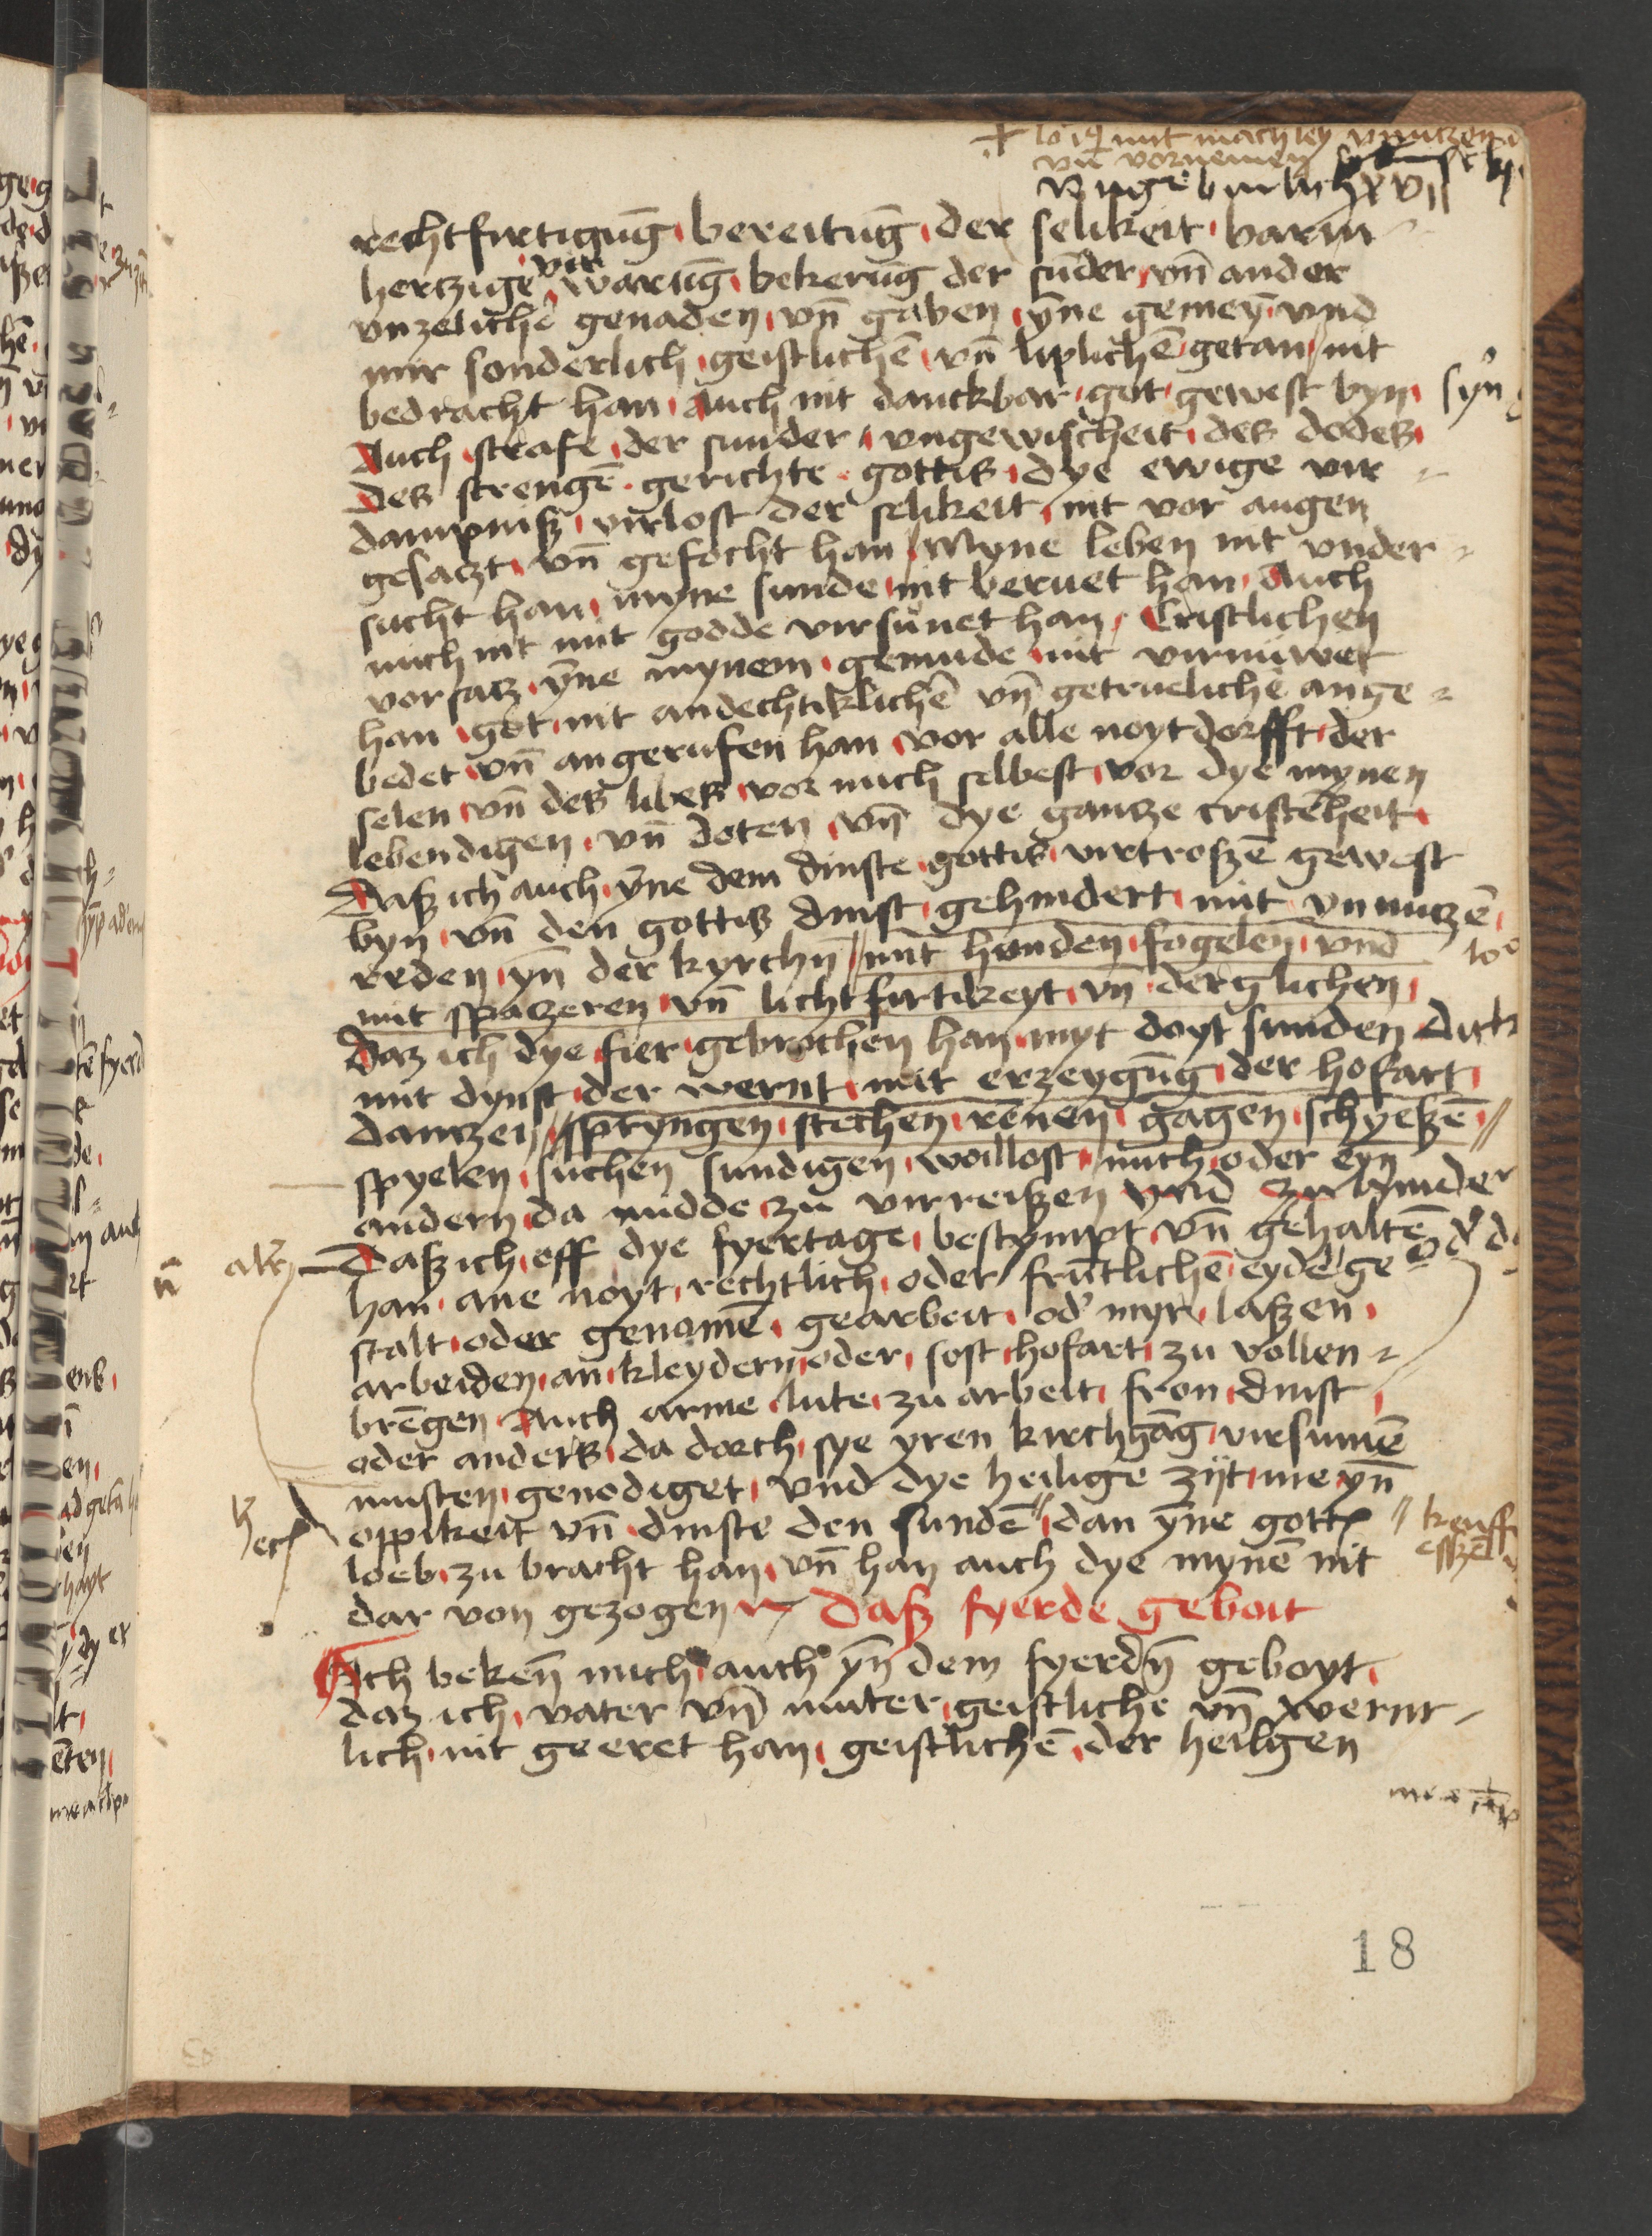 vnd vornemen
rechtfirtigūg bereitūg der selikeit barm
hertzige vir wartūg bekerūg der sūder vn̄ ander
vnzelichē genaden vn̄ gaben ȳne gemeyn̄ vnd
mir sonderlich geistlichē vn̄ liplichē getan nit
bedracht han Auch nit danckbar got gewest byn syn
Auch strafe der sunder vngewischeit des dodes
Des strengē gerichte gottis dye ewige vir
dampniß virlost der selikeit nit vor augen
gesaczt vn̄ gefocht han Myne leben nit vnder
sucht han myne sunde nit beruet han Auch
mich nit mit godde virsunet han Cristlichen
vorsacz ȳne mynem gemude nit virnuwet
han got nit andechtiklichē vn̄ getruelichē ange
bedet vn̄ angerufen han vor alle noytdorfft der
selen vn̄ des libes vor mich selbest vor dye mynen
lebendigen vn̄ doten vn̄ dye gantze cristēheit
Daß ich auch ȳne dem dinste gottis virtroßē gewest
byn vn̄ den gottis dinst gehindert mit vnnuczē
reden yn̄ der kyrchn̄ mit hunden fogelen vnd
mit spaczeren vn̄ lichtfirtikeyt vn̄ derglichen
Daz ich dye fier gebrochen han myt doyt sunden Dick
mit dynst der wernt mit erzeygūg der hofart
dantzen spryngen stechen rēnen gagen schyeßē
spyelen suchen sundigen wollost mich oder eyn
andern da midde zu virreißen vnd zu
Daß ich off dye fyertage bestympt vn̄ gehaltē
han ane noyt rechtlich oder frūtlichē eyde ge
stalt oder genomē gearbeit od' myr laßen
arbeiden an kleydern oder sost hofart zu vollen
brēgen Auch arme lute zu arbeit fron dinst
oder anders da dorch sye yren kirchgāg virsumē
musten genodiget vnd dye heilige zijt me yn̄
oppikeit vn̄ dinste den sundē dan ȳne gott
loeb zu bracht han vn̄ han auch dye mynē nit
dar von gezogen Daß fyerde geboit
Ich bekēn mich auch yn̄ dem fyerdn̄ geboyt
daz ich vater vn̄ muter geistliche vn̄ wernt
lich nit geeret han geistlichē der heilgen
18